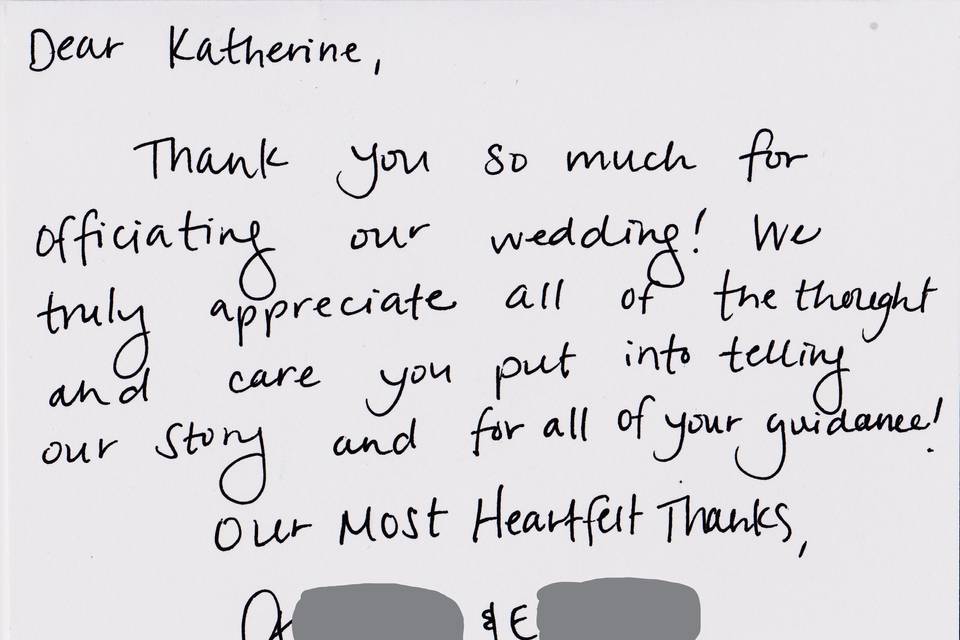 Dear Katherine,
Thank you so much for
officiating our wedding! We
truly appreciate all of the thought
and care you put into telling
our story and for all of your guidance!
Our Most Heartfelt Thanks,
& E